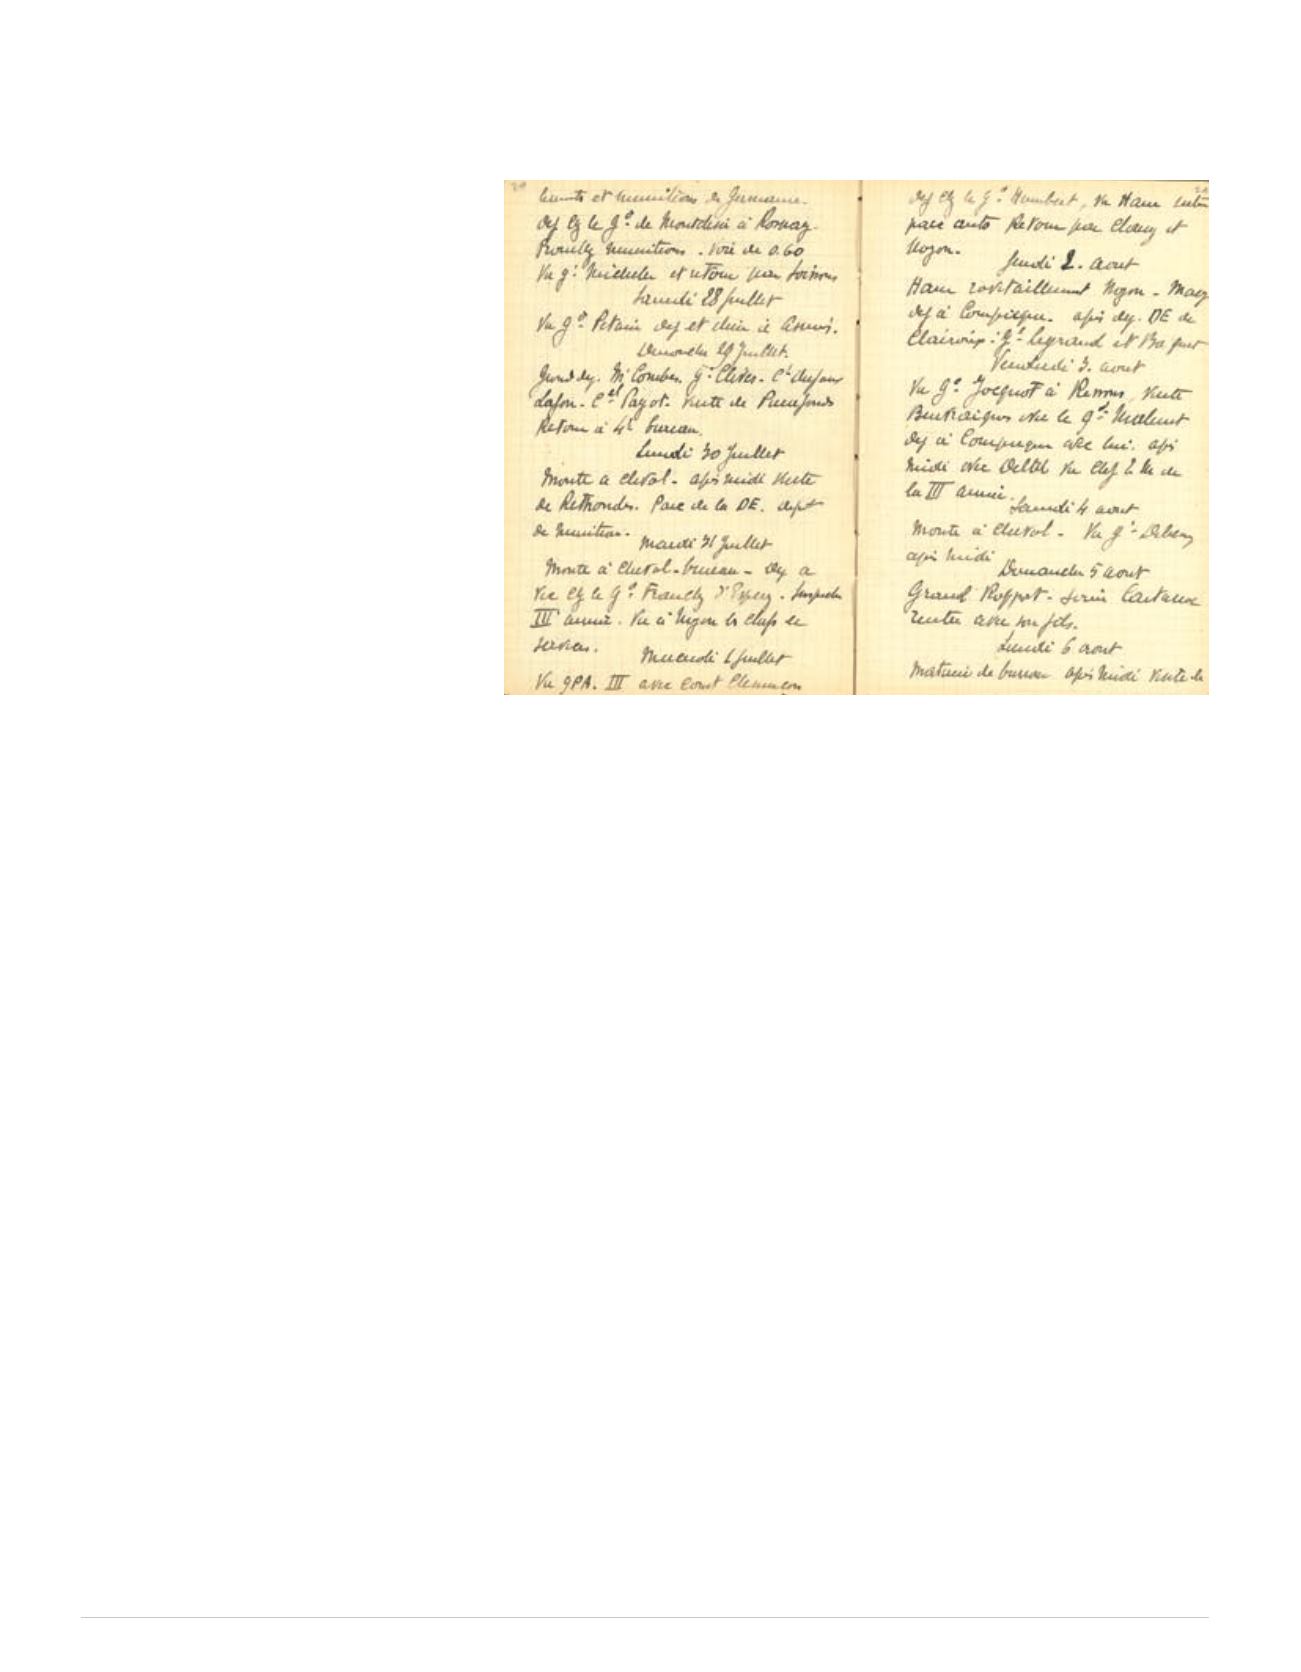 et munitions de Germaine.
dej chez le Gal de Mondésir à Rosnay.
Prouilly munitions. voie de 0.60
Vu gl Micheler et retour par Soissons
Samedi 28 Juillet
Vu Gal Petain dej et
Dimanche 29 Juillet.
Grand dej. Mr Combes. Gl Clives. Ct Dufour
Lafon. Cel Payot. visite de Pierrefonds
Retour à 4h bureau.
Lundi 30 Juillet
Monté à cheval. après midi visite
de Rethondes. Parc de la DE. depot
de munition.
Mardi 31 Juillet
Monté à cheval. bureau. Dej a
Vic chez le Gal Franchey d'Esperey.
III armée. Vu à Noyon les chefs de
services.
Mercredi 1 Juillet
Vu GPA. III avec Comt Clemencon
dej chez le Gal Humbert, vu Ham
parc auto Retour par Chauny et
Noyon.
Jeudi 2. aout
Ham ravitaillement Noyon.
dej à Compiegne. après dej. DE de
Clairoix. Gl Legrand et
Vendredi 3. aout
Vu Gal Jacquot à Ressons, visite
avec le Gal
dej à Compiegne avec lui. après
midi avec Deltil vu chef E M de
la III armée.
Samedi 4 aout
Monté à cheval. Vu Gl Debeney
après midi
Dimanche 5 aout
Grand Rapport. Castaux
rentre avec son fils.
Lundi 6 aout
Matinée de bureau après midi visite de